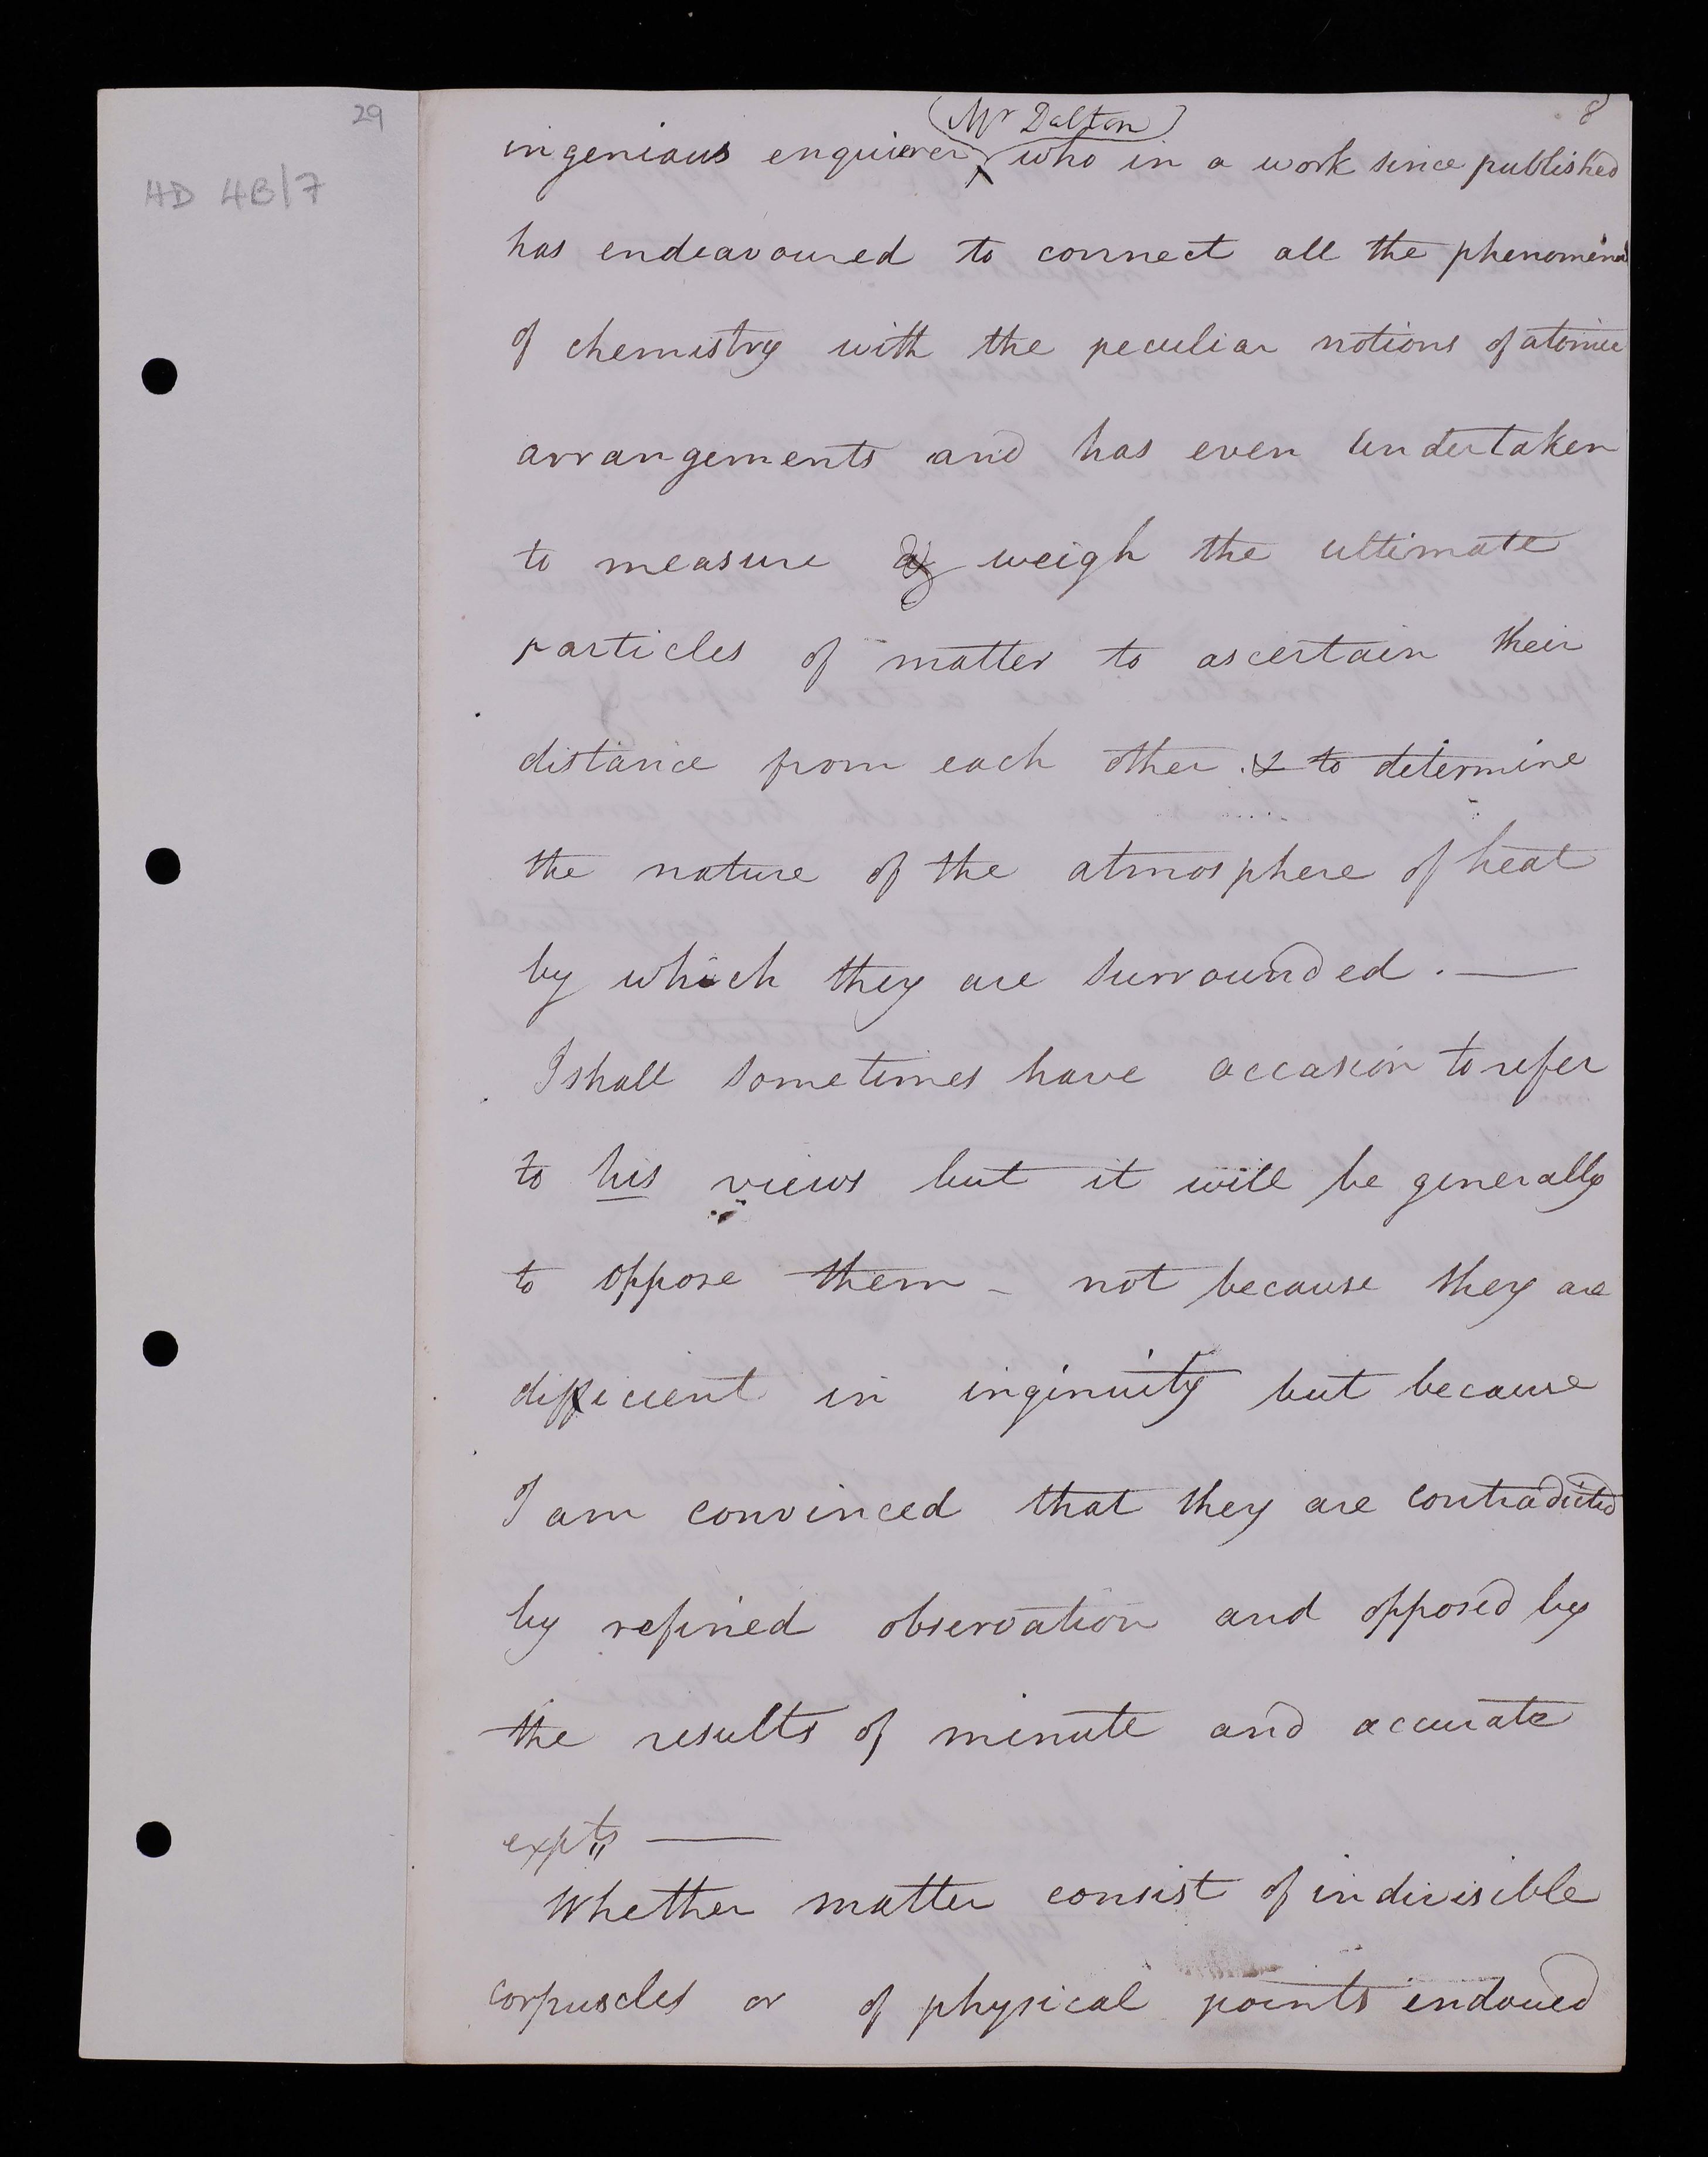 29
HD 4B/7
8
(Mr Dalton)
ingenious enquierer who in a work since published
has endeavoured to connect all the phenomena
of chemistry with the peculiar notions of atomic
arrangements and has even undertaken
to measure & weigh the ultimate
particles of matter to ascertain their
distance from each other. & to determine
the nature of the atmosphere of heat
by which they are surrounded. —
I shall sometimes have occasion to refer
to his views but it will be generally
to oppose them – not because they are
difficient in inginuity but because
I am convinced that they are contradicted
by refined observation and opposed by
the results of minute and accurate
expts —
Whether matter consist of indivisible
corpuscles or of physical points endowed